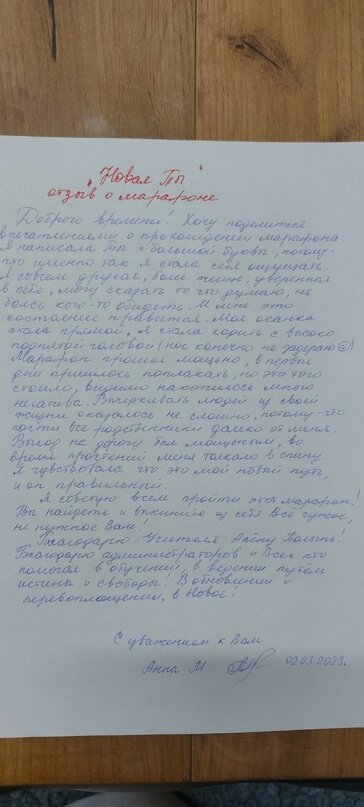 "Новая Ты"
отзыв о марафоне
Доброго времени! Хочу поделиться
впечатлениями о прохождении марафона.
Я написала Ты с большой буквы, потому-
что именно так я стала себя ощущать.
Я совсем другая, более уверенная
в себе, могу сказать то что думаю, не
боясь кого-то обидеть. И мне это
состояние нравится. Моя осанка
стала прямой, я стала ходить с высоко
поднятой головой (нос конечно не задираю ☺)
Марафон прошел мощно, в первые
дни пришлось поплакать, но это того
стоило, видимо накопилось много
негатива. Вычеркивать людей из своей
жизни оказалось не сложно, потому-что
почти все родственники далеко от меня.
Выход на дорогу был мощным, во
время прочтений меня толкало в спину.
Я чувствовала что это мой новый путь,
и он правильный.
Я советую всем пройти этот марафон!
Вы найдете и из себя Всё чужое,
не нужное Вам!
Благодарю Учителя Алёну Полынь!
Благодарю администраторов и Всех кто
помогал в обучении, в ведении путём
истины и свободы! В обновлении и
перевоплощении, в Новое!
С уважением к Вам
Анна М. 02.03.2023г.